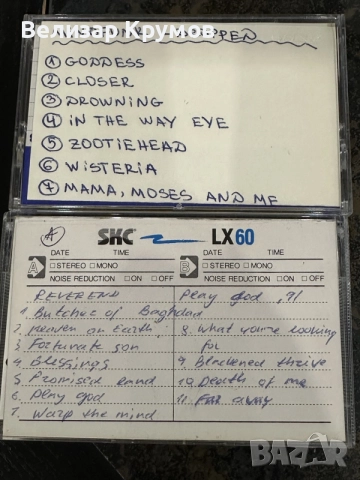 Велизар Крумов
① GODDESS
② CLOSER
③ DROWNING
④ IN THE WAY EYE
⑤ ZOOTIEHEAD
⑥ WISTERIA
⑦ MAMA, MOSES AND ME
A SKC LX60
A DATE TIME B DATE TIME
□ STEREO □ MONO □ STEREO □ MONO
NOISE REDUCTION □ ON □ OFF NOISE REDUCTION □ ON □ OFF
REVEREND Play god, 91
1. Butcher of Baghdad
2. heaven on Earth, 8. What you're looking
3. Fortunate son for
4. Blessings 9. Blackened thrive
5. Promised land 10. Death of me
6. play god 11. Far away
7. Warp the mind
BAZAR
bg